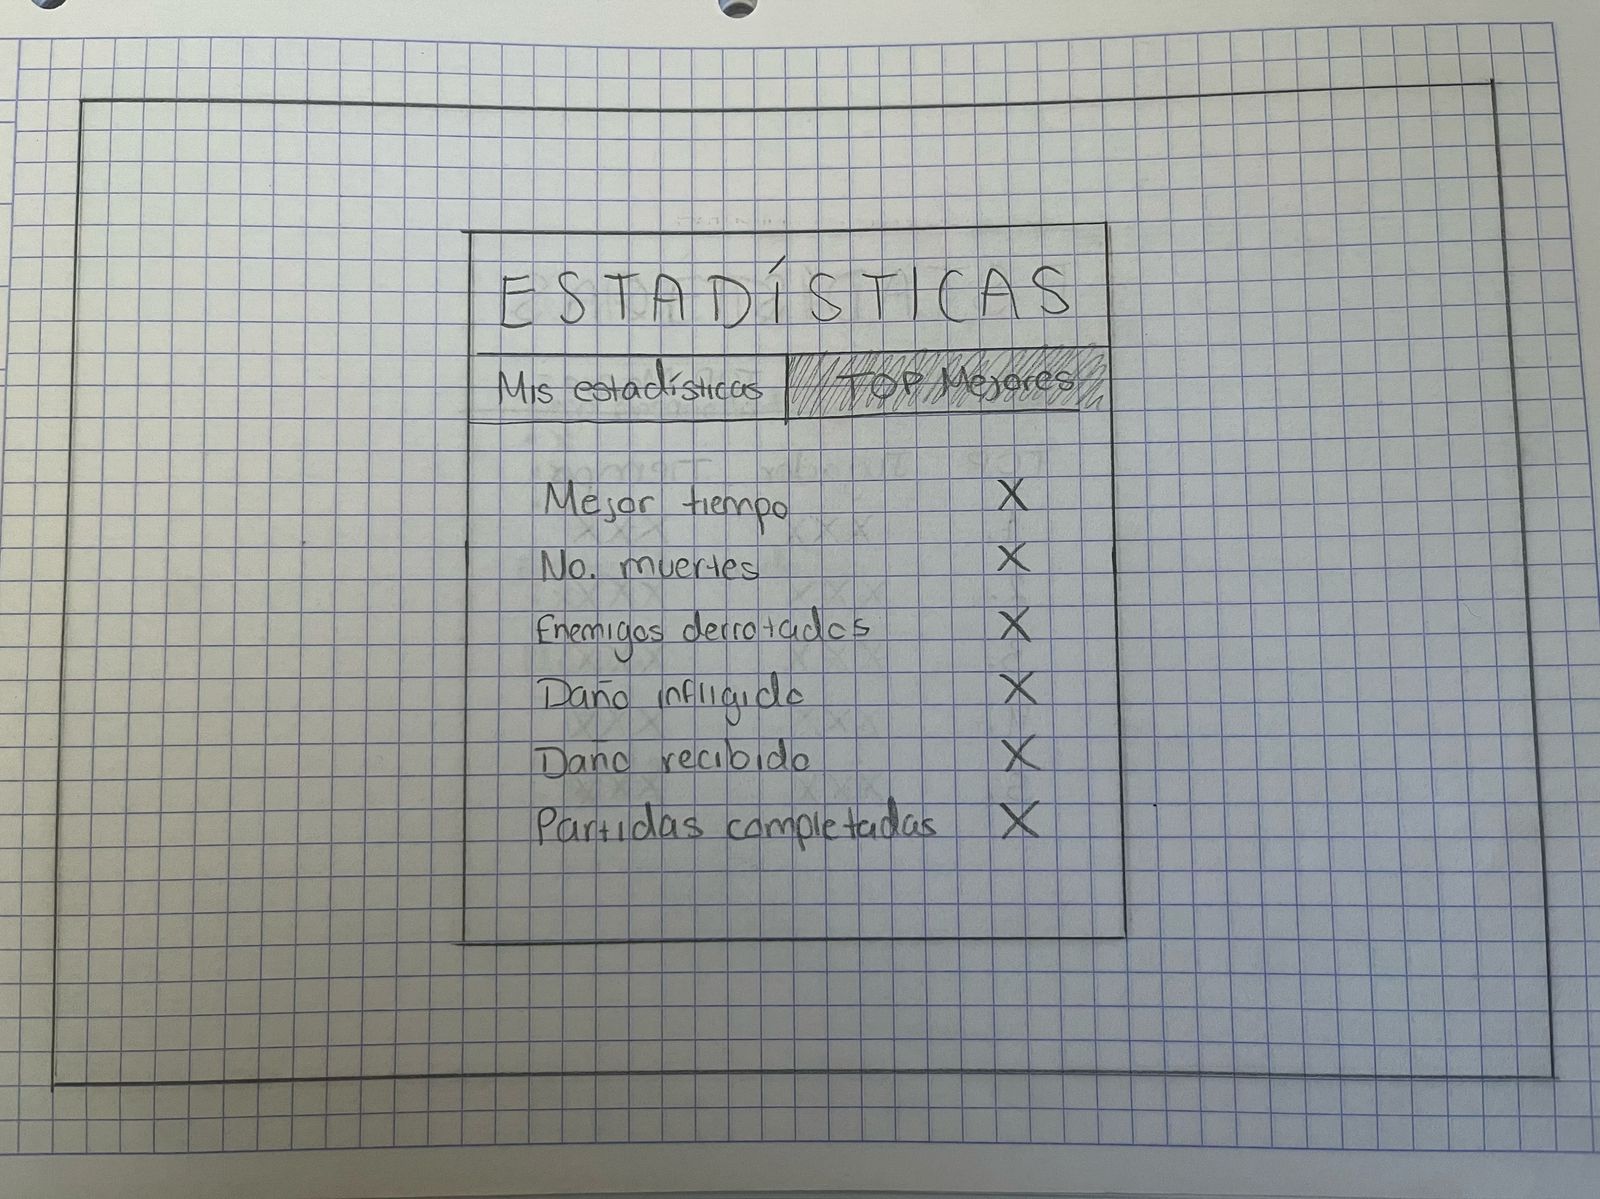 ESTADÍSTICAS
Mis estadísticas TOP Mejores
Mejor tiempo X
No. muertes X
Enemigos derrotados X
Daño infligido X
Daño recibido X
Partidas completadas X